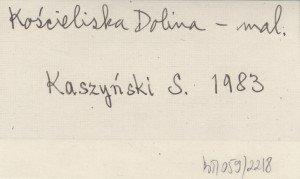 Kościeliska Dolina – mal.
Kaszyński S. 1983
059/2218